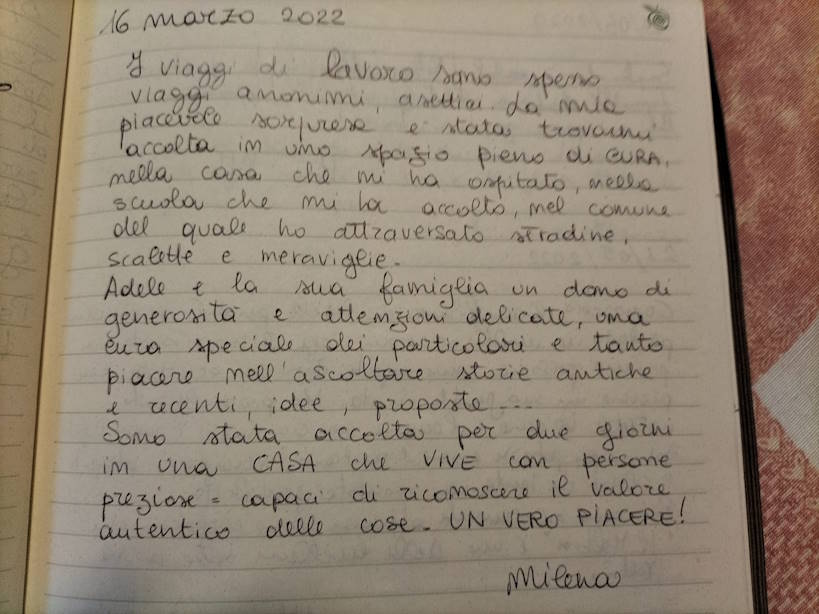 16 marzo 2022
I viaggi di lavoro sono spesso
viaggi anonimi, asettici. La mia
piacevole sorpresa è stata trovarmi
accolta in uno spazio pieno di CURA,
nella casa che mi ha ospitato, nella
scuola che mi ha accolto, nel comune
del quale ho attraversato stradine,
scalette e meraviglie.
Adele e la sua famiglia un dono di
generosità e attenzioni delicate, una
cura speciale dei particolari e tanto
piacere nell'ascoltare storie antiche
e recenti, idee, proposte...
Sono stata accolta per due giorni
in una CASA che VIVE con persone
preziose = capaci di riconoscere il valore
autentico delle cose. UN VERO PIACERE!
Milena